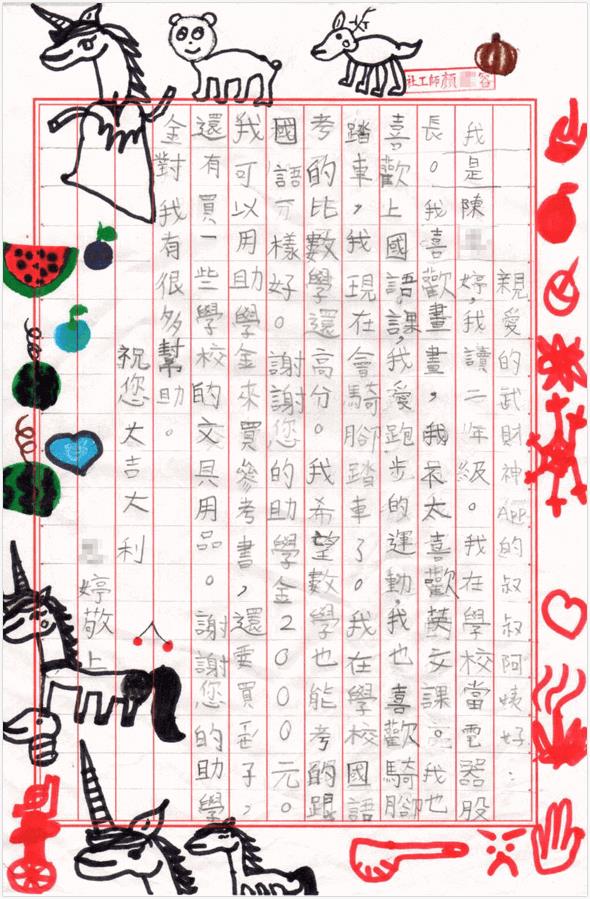 社工師顏容
親愛的武財神App的叔叔阿姨好:
我是陳婷,我讀二年級。我在學校當電器股
長。我喜歡畫畫,我不太喜歡英文課。我也
喜歡上國語課,我愛跑步的運動,我也喜歡騎腳
踏車,我現在會騎腳踏車了。我在學校國語
考的比數學還高分。我希望數學也能考的跟
國語一樣好。謝謝您的助學金2000元。
我可以用助學金來買參考書,還要買子,
還有買一些學校的文具用品。謝謝您的助學
金對我有很多幫助。
祝您大吉大利
婷敬上